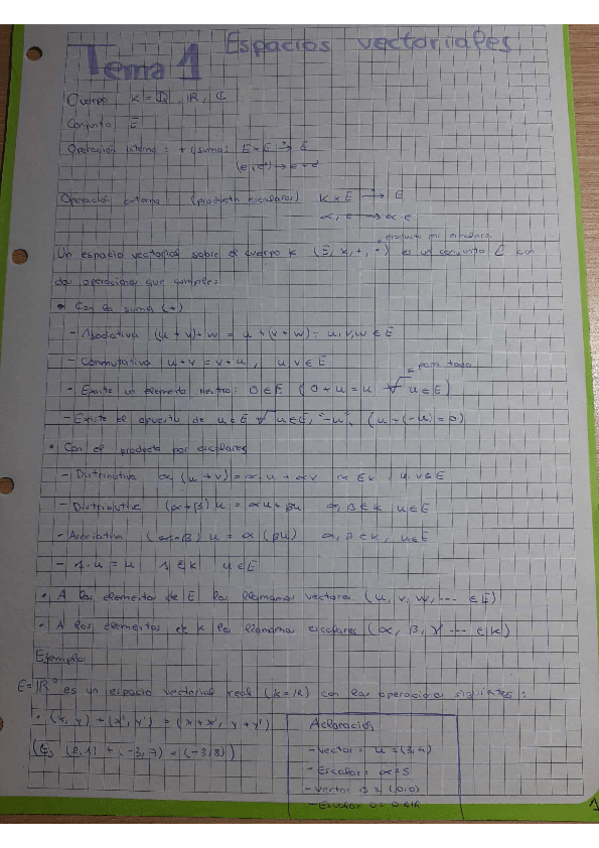 Tema 1 Espacios vectoriales
Cuerpo K = Q, IR, C
Conjunto E
Operación interna: + (suma) E × E → E
(e, e') → e + e'
Operación externa (producto escalares) K × E → E
α, e → α·e
producto por escalares
Un espacio vectorial sobre el cuerpo K (E, K, +, ·) es un conjunto E con
dos operaciones que cumple:
• Con la suma (+)
- Asociativa (u + v) + w = u + (v + w) = u, v, w ∈ E
- Conmutativa u + v = v + u, u, v ∈ E
para todo
- Existe un elemento neutro: 0 ∈ E (0 + u = u ∀ u ∈ E)
- Existe el opuesto de u ∈ E ∀ u ∈ E, "-u", (u + (-u) = 0)
• Con el producto por escalares
- Distributiva α(u + v) = α·u + αv α ∈ K, u, v ∈ E
- Distributiva (α + β) u = αu + βu α, β ∈ K, u ∈ E
- Asociativa (α·β) u = α (βu) α, β ∈ K, u ∈ E
- 1·u = u 1 ∈ K u ∈ E
• A los elementos de E los llamamos vectores (u, v, w, ... ∈ E)
• A los elementos de K los llamamos escalares (α, β, γ ... ∈ K)
Ejemplo:
E = IR² es un espacio vectorial real (K = IR) con las operaciones siguientes:
• (x, y) + (x', y') = (x + x', y + y')
+ (-3, 7) = (-3, 8))
Aclaración
- Vector: u = (3, 4)
- Escalar: α = 5
- Vector 0 = (0, 0)
- Escalar 0 = 0 ∈ IR
1